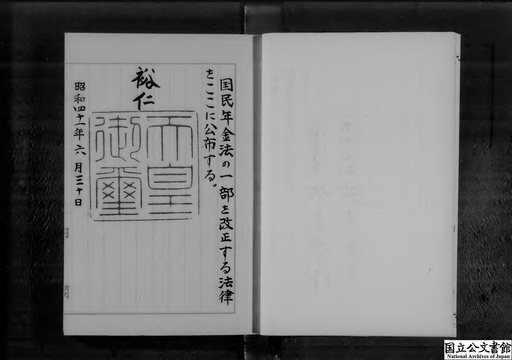 国民年金法の一部を改正する法律
をここに公布する。
裕仁
天皇
御璽
昭和四十一年六月三十日
国立公文書館
National Archives of Japan